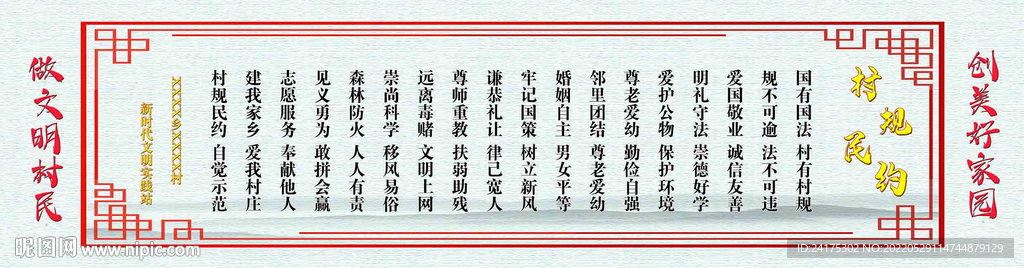 创美好家园
村规民约
国有国法 村有村规
规不可逾 法不可违
爱国敬业 诚信友善
明礼守法 崇德好学
爱护公物 保护环境
尊老爱幼 勤俭自强
邻里团结 尊老爱幼
婚姻自主 男女平等
牢记国策 树立新风
谦恭礼让 律己宽人
尊师重教 扶弱助残
远离毒赌 文明上网
崇尚科学 移风易俗
森林防火 人人有责
见义勇为 敢拼会赢
志愿服务 奉献他人
建我家乡 爱我村庄
村规民约 自觉示范
XXXX乡XXXX村
新时代文明实践站
做文明村民
昵图网 www.nipic.com
ID:24175302 NO:20220529114744879129